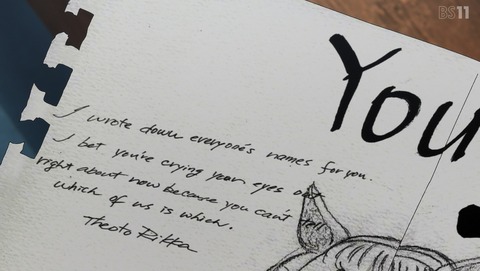 BS11
You
I wrote down everyone's names for you.
I bet you're crying your eyes out
right about now because you can't tell
which of us is which.
Theoto Rikka